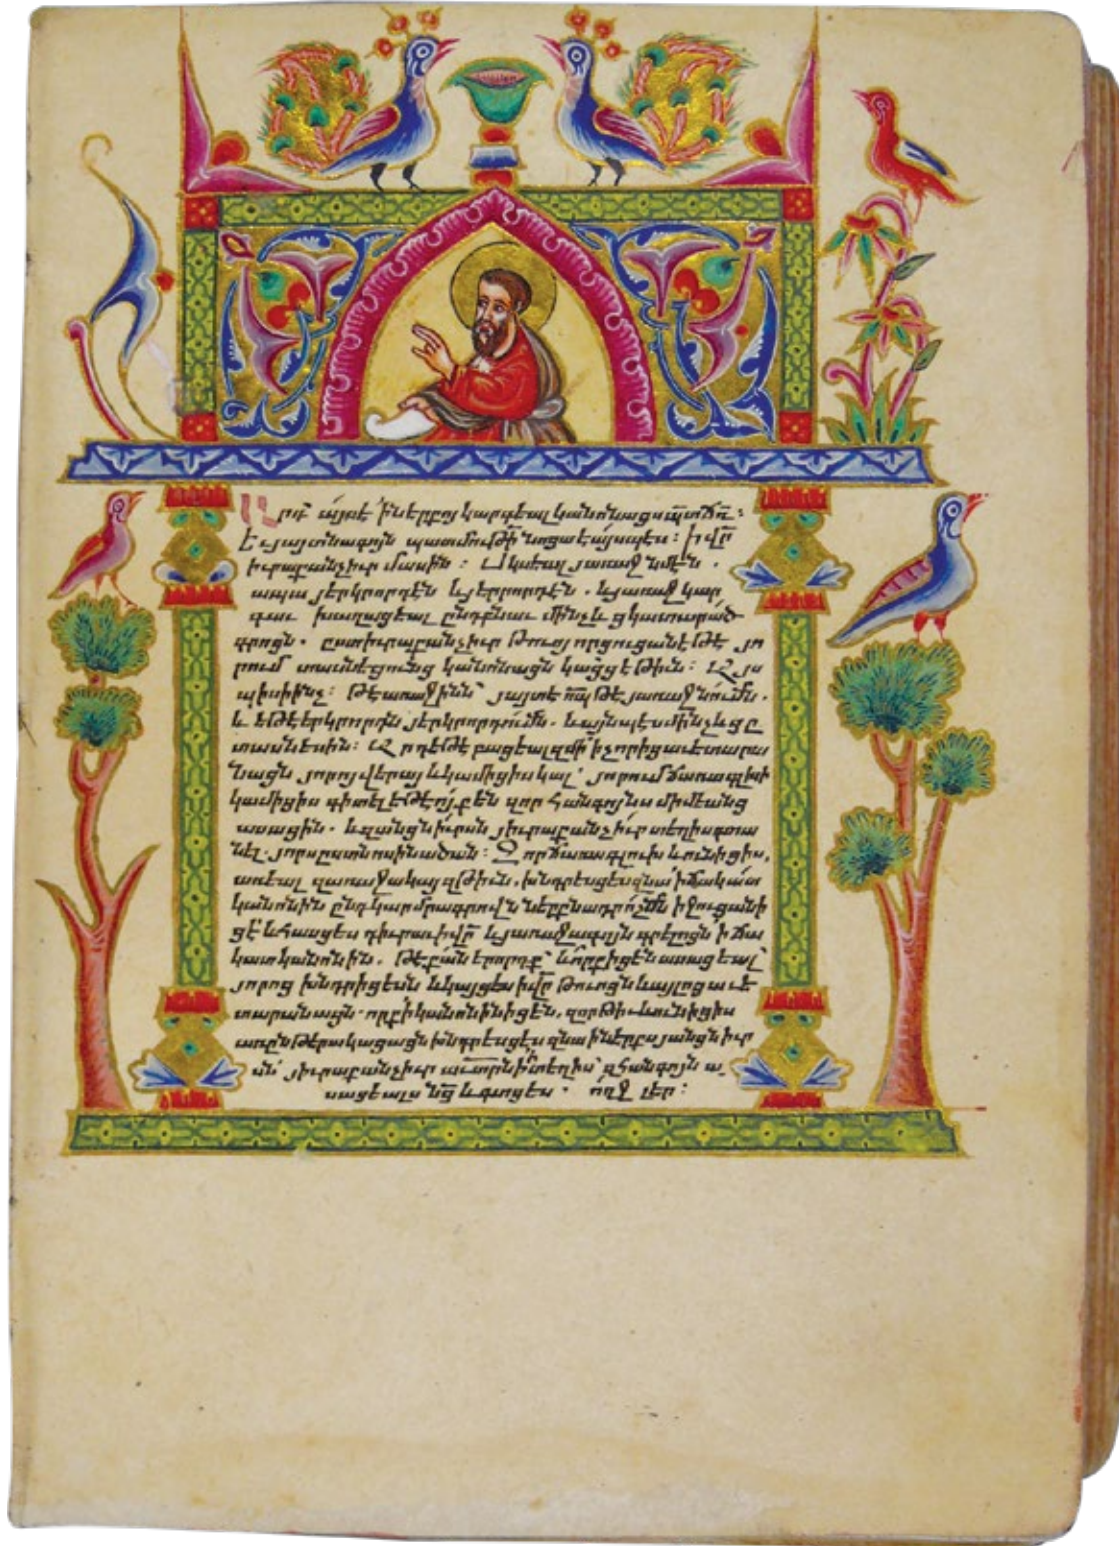 Արդ այս է ՚ի ներքոյ կարգեալ կանոնացս պատճռ :
Եւ յայտնագոյն պատմութի նոցա է այսպէս : Իվր
իւրաքանչիւր մասին : Սկսեալ յառաջնմէն .
ապա յերկրորդէն և յերրորդէն . և յառաջ կար
գաւ խաղացեալ ընդբնաւ մինչև ցկատարած
գրոցն . ըստ իւրաքանչիւր թուոյ որ ցուցանէ թէ յո
րում տասնեցունց կանոնացն կայցէ թիւն :
պիսի ինչ : թէ առաջինն՝ յայտ է թէ յառաջնումն .
և եթէ երկրորդն յերկրորդումն . և այնպէս մինչև ցը
տասներին : եթէ բացեալ զմի ՚ի չորից աւետարա
նացն յորոյ վերայ և կամիցիս կալ՝ յորում ճառագլխի
կամիցիս գիտել եթէ ո՛յք են զոր հանգոյնս միմեանց
ասացին . և զանցն յիւրաքանչիւր տեղիս գտա
նել . յորս ըստ նոսին ածան : Զոր ճառագլուխ և ունիցիս,
առեալ զառաջակայ զթիւն , խնդրեսցես զնա ՚ի ճակատ
կանոնին ընդ կարմրագրովն
ցէ և հասցես դիւրաւ իվր և յառաջագոյն գրելոցն ՚ի ճա
կատ կանոնին . թէ քանի և որք իցեն ասացեալ՝
յորոց խնդրիցեսն իվր թուոցն և այլոց աւե
տարանացն . որք ՚ի կանոնին իցեն, զոր թիւ և ունիցիս
առընթերակացացն խնդրեսցես զնա ՚ի ներքս յանցն իւր
ան՝ յիւրաքանչիւր տեղիս՝ զհանգոյն ա
սացեալս նց և գտցես . ո՛ղջ լեր :